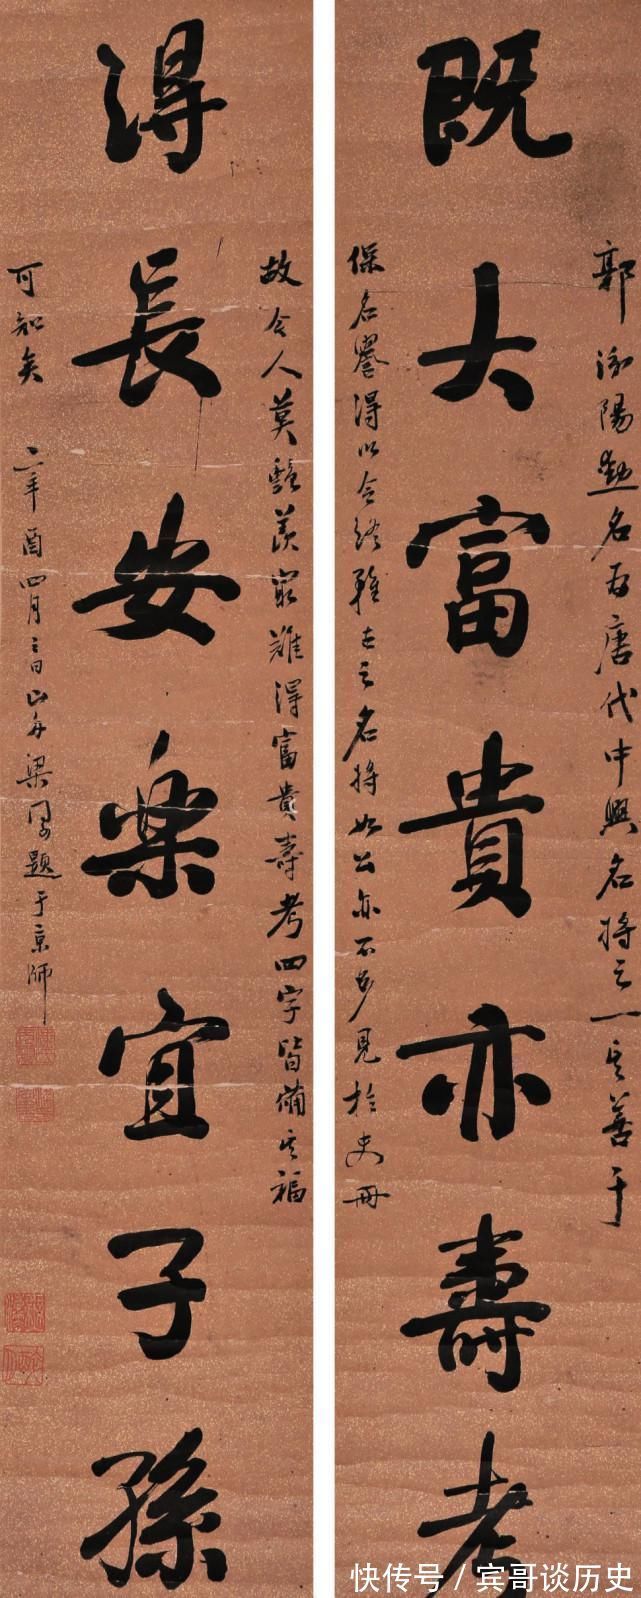 既大富貴亦壽考
郭汾陽勳名為唐代中興名將之一其善于
保名譽得以令終雖古之名將如公亦不多見於史冊
得長安樂宜子孫
故令人莫艷羨最難得富貴壽考四字皆備其福
可知矣
辛酉四月 山舟梁同書題于京師
快传号 / 宾哥谈历史